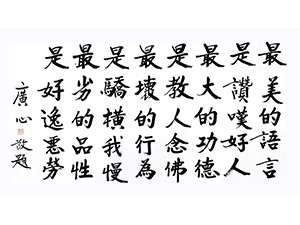 最美的語言
是讚嘆好人
最大的功德
是教人念佛
最壞的行為
是驕橫我慢
最劣的品性
是好逸惡勞
廣心敬題